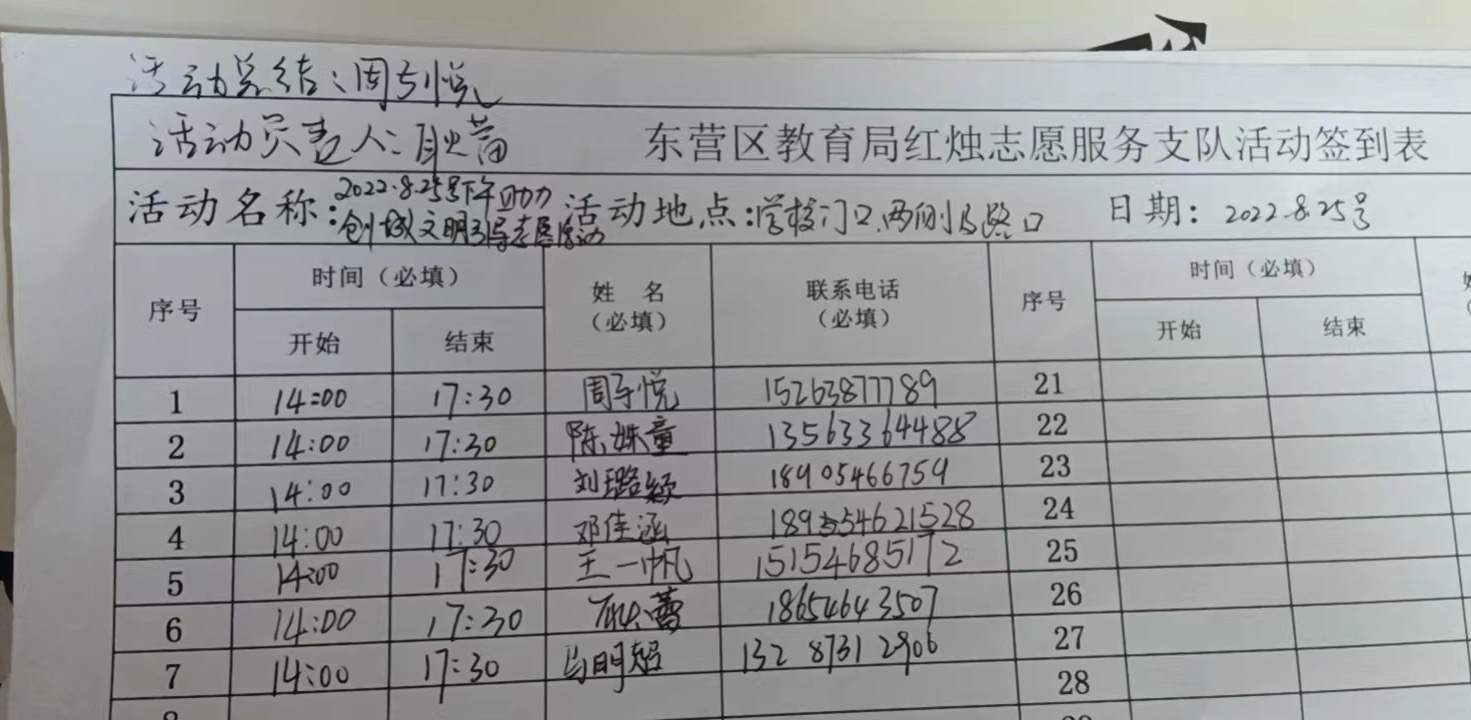 活动总结：周子悦
活动负责人：耿蕾
东营区教育局红烛志愿服务支队活动签到表
活动名称：2022.8.25号下午助力创城文明引导志愿活动 活动地点：学校门口两侧及路口 日期：2022.8.25号
序号 时间（必填） 姓 名（必填） 联系电话（必填） 序号 时间（必填）
开始 结束 开始 结束
1 14:00 17:30 周子悦 15263877789 21
2 14:00 17:30 陈姝童 13563364488 22
3 14:00 17:30 刘璐颖 18905466759 23
4 14:00 17:30 邓佳涵 24
5 14:00 17:30 王一帆 15154685172 25
6 14:00 17:30 耿蕾 18654643507 26
7 14:00 17:30 马明超 132 8731 2906 27
28